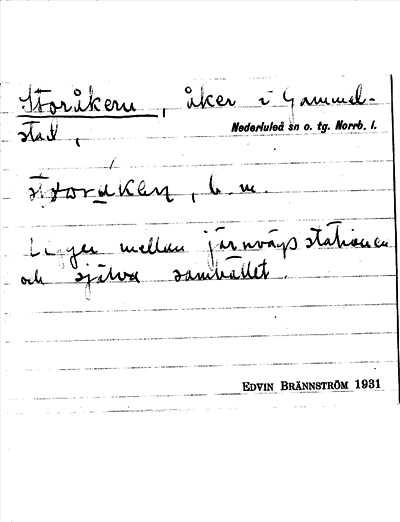 Storåkern, åker i Gammel-
stad,
Nederluleå sn o. tg. Norrb. l.
b. m.
Ligger mellan järnvägsstationen
och själva samhället.
EDVIN BRÄNNSTRÖM 1931